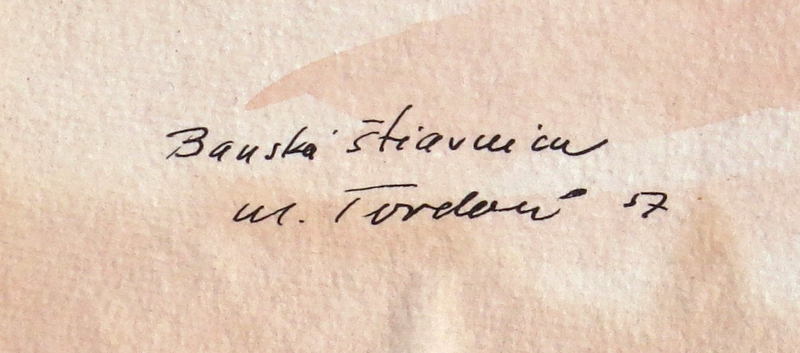 Banská Štiavnica
M. Tordoň 57